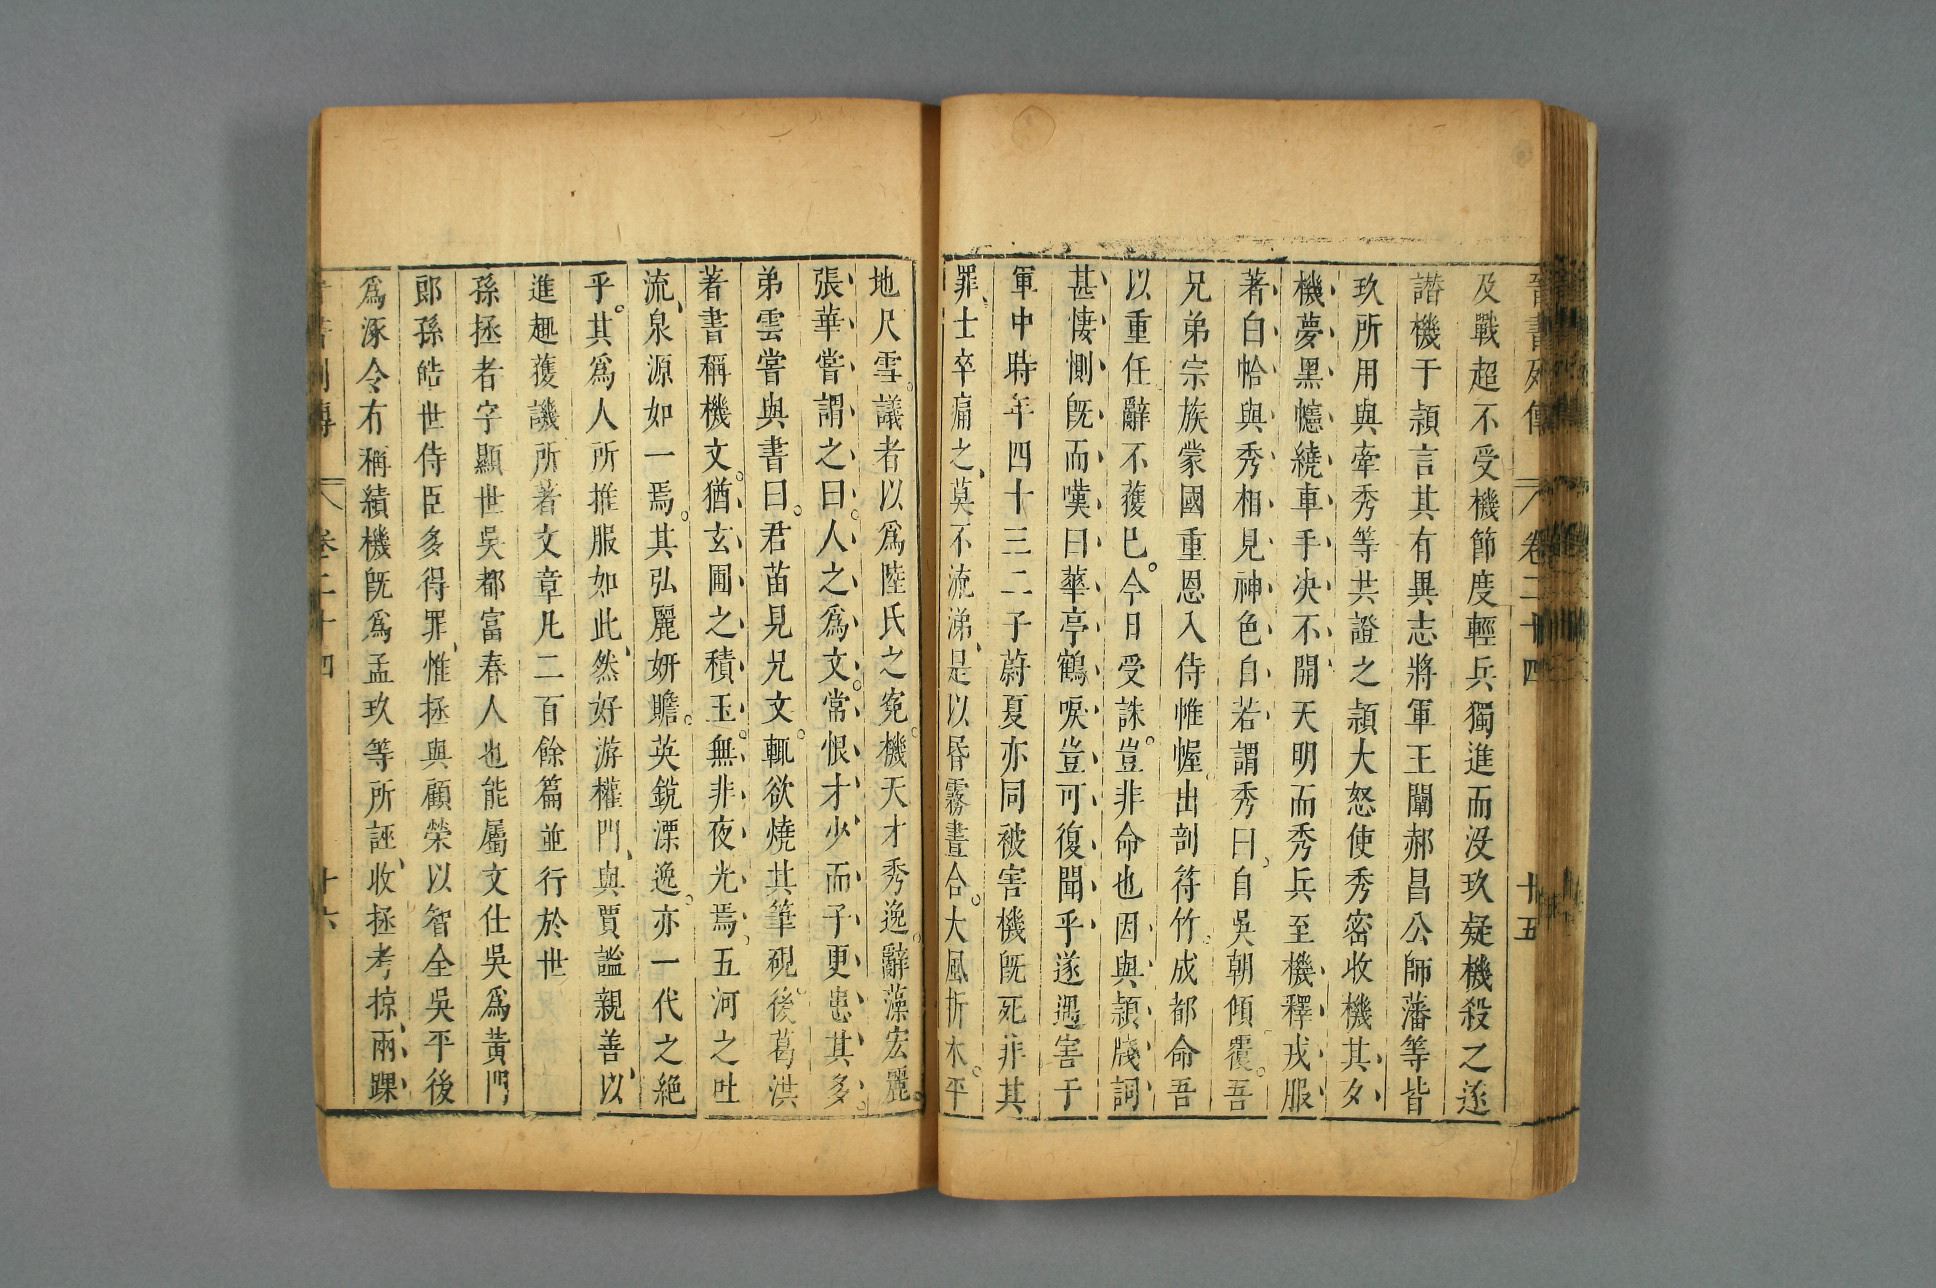 晉書列傳 卷二十四 十五
及戰超不受機節度輕兵獨進而没玖疑機殺之遂
譖機于頴言其有異志將軍王闡郝昌公師藩等皆
玖所用與牽秀等共證之頴大怒使秀密收機其夕
機夢黑幰繞車手决不開天明而秀兵至機釋戎服
著白帢與秀相見神色自若謂秀曰自吳朝傾覆吾
兄弟宗族蒙國重恩入侍帷幄出剖符竹成都命吾
以重任辭不獲已今日受誅豈非命也因與頴牋詞
甚悽惻旣而嘆曰華亭鶴唳豈可復聞乎遂遇害于
軍中時年四十三二子蔚夏亦同被害機旣死非其
罪士卒痛之莫不流涕是以昏霧晝合大風折木平
地尺雪議者以爲陸氏之寃機天才秀逸辭藻宏麗
張華嘗謂之曰人之爲文常恨才少而子更患其多
弟雲嘗與書曰君苗見兄文輒欲燒其筆硯後葛洪
著書稱機文猶玄圃之積玉無非夜光焉五河之吐
流泉源如一焉其弘麗妍贍英銳漂逸亦一代之絶
乎其爲人所推服如此然好游權門與賈謐親善以
進趣獲譏所著文章凡二百餘篇並行於世
孫拯者字顯世吳都富春人也能屬文仕吳爲黄門
郎孫皓世侍臣多得罪惟拯與顧榮以智全吳平後
爲涿令有稱績機旣爲孟玖等所誣收拯考掠兩踝
書列傳 卷二十四 十六